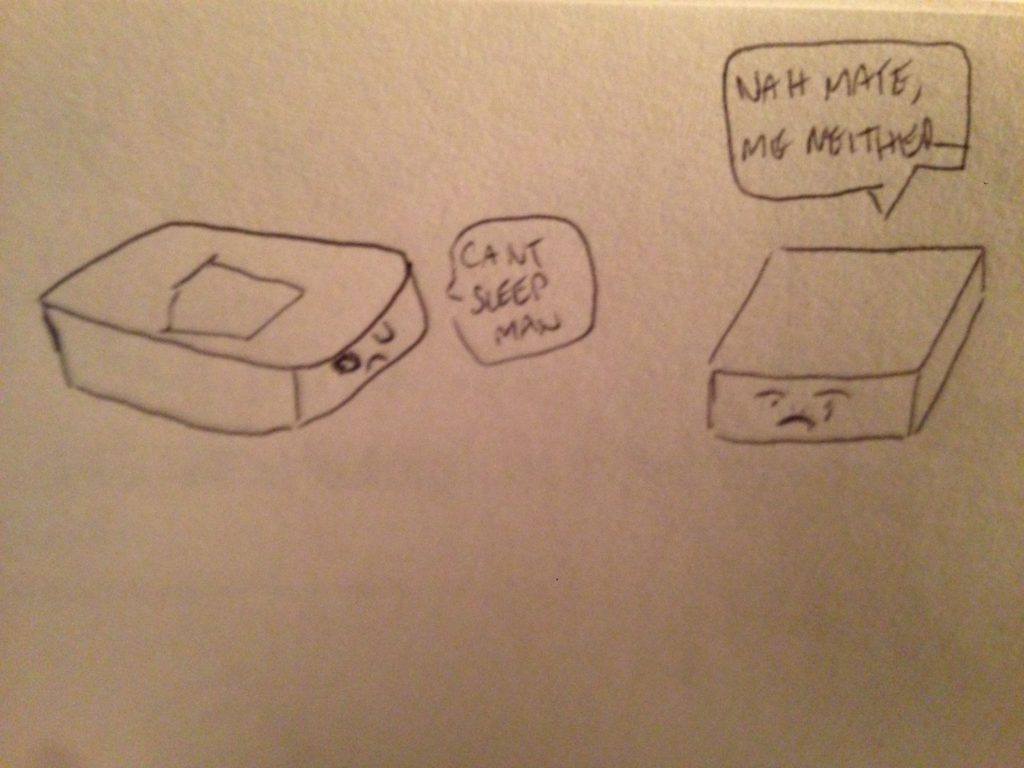 CANT
SLEEP
MAN
NAH MATE,
ME NEITHER